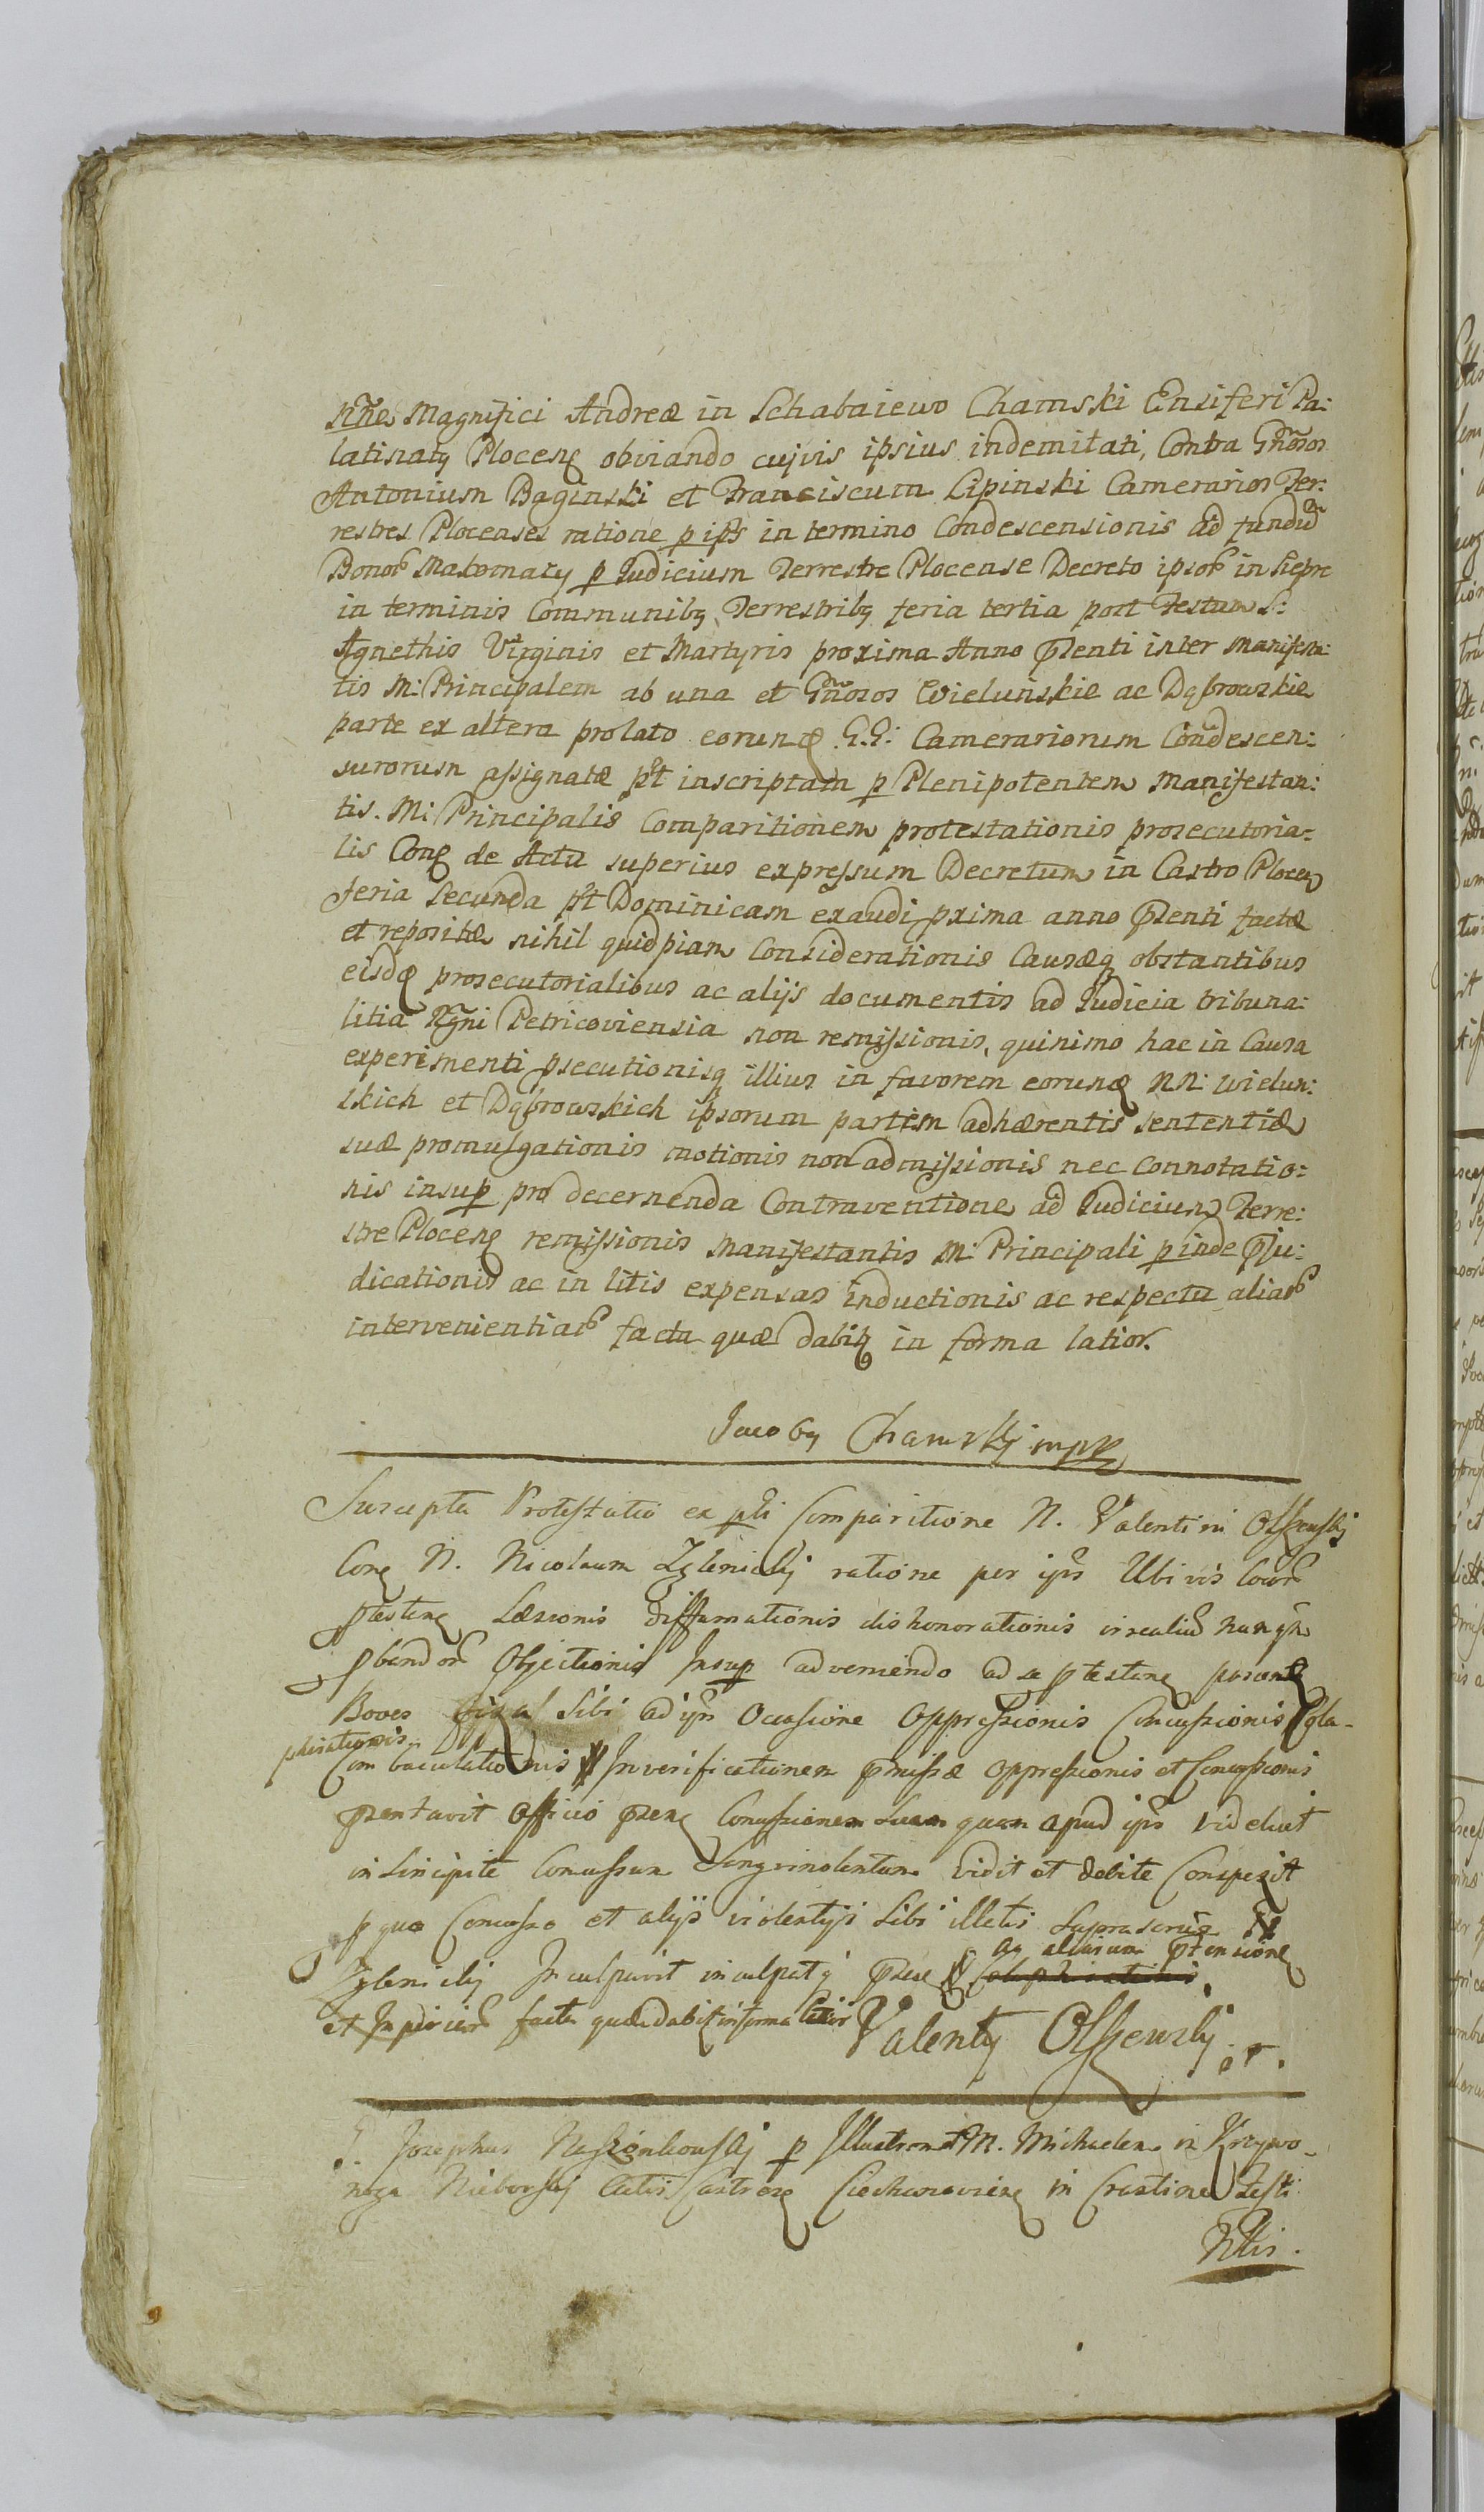 nñe Magnifici Andreæ in Schabaiewo Chamski Ensiferi Pa:
latinatꝯ Plocensꝭ obviando cujvis ipsius indemitati, Contra Gñosos
Antonium Baginski et Franciscum Lipinski Camerarios Ter:
restres Plocenses ratione p ipŝ in termino Condescensionis ad fundũ
Bonoꝝ Makomazy p Judicium Terrestre Plocense Decreto ipsoꝝ in
in terminis Communibꝯ Terrestribꝯ feria tertia post Festum S:
Agnethis Virginis et Martyris proxima Anno p̃senti inter Manifesta:
tis M: Principalem ab una et Gñosos Wieluńskie ac Dąbrowskie
parte ex altera prolato eorundꝭ G.G: Camerariorum Condescen:
surorum assignatæ p̃t inscriptam p Plenipotentem Manifestan:
tis. M: Principalis Comparitionem protestationis prosecutoria:
lis Conꝭ de Actu superius expressum Decretum in Castro Plocenꝭ
feria Secunda p̃t Dominicam exaudi pxima anno p̃senti factæ
et repositæ nihil quidpiam Considerationis Causæqꝫ obstantibus
eisdꝭ prosecutorialibus ac alijs documentis ad Judicia tribuna:
litia Rg̃ni Petricoviensia non remissionis, quinimo hac in Causa
experimenti psecutionisqꝫ illius in favorem eorundꝭ NN: Wielun:
skich et Dąbrowskich ipsorum partem adhærentis sententiæ
suæ promulgationis motionis non admissionis nec Connotatio:
nis insup pro decernenda Contraventione ad Judicium Terre:
stre Plocensꝭ remissionis Manifestantis M: Principali pinde p̃ju:
dicationis ac in litis expensas inductionis ac respectu aliaꝝ
intervenientiaꝝ facta quæ dabitꝯ in forma latior.
Jacobꝯ Chamskj mpp
Suscepta Protestatio ex p̃ti Comparitione N. Valentini Olszewskj
Conꝭ N. Nicolaum Zglenickj ratione per ip̃s Ubi vis locoꝝ
ptestanꝭ Læsionis diffamationis dishonorationis irrealiũ nunq̃m
pbandoꝝ Objectionis Insup adveniendo ad se ptestanꝭ
Boves Sibi ad ip̃s Occasione Oppressionis Concussionis Cola-
phisationis
Cum baculationis In verificationem p̃missæ oppressionis et Concussionis
p̃sentavit Officio p̃senꝭ Concussionem Suam quam apud ip̃s vid elicet
in Sincipite Concussum Sangvinolentum vidit et debite Conspexit
p quo Concusso et alijs violentijs Sibi illatis Suprascriptꝭ N
ac aliarum p̃tensionꝭ
Zglenickj Inculpavit inculpatqꝫ p̃sse
et Injuriarꝝ facta quæ dabitꝯ in forma latior Valenty Olszewskj
G. Josephus p Illustrem et M. Michaelem in Krzywo-
nega Nieborskj Actis Castrensꝭ Ciechanoviensꝭ in Crastino Festi
Ntis.